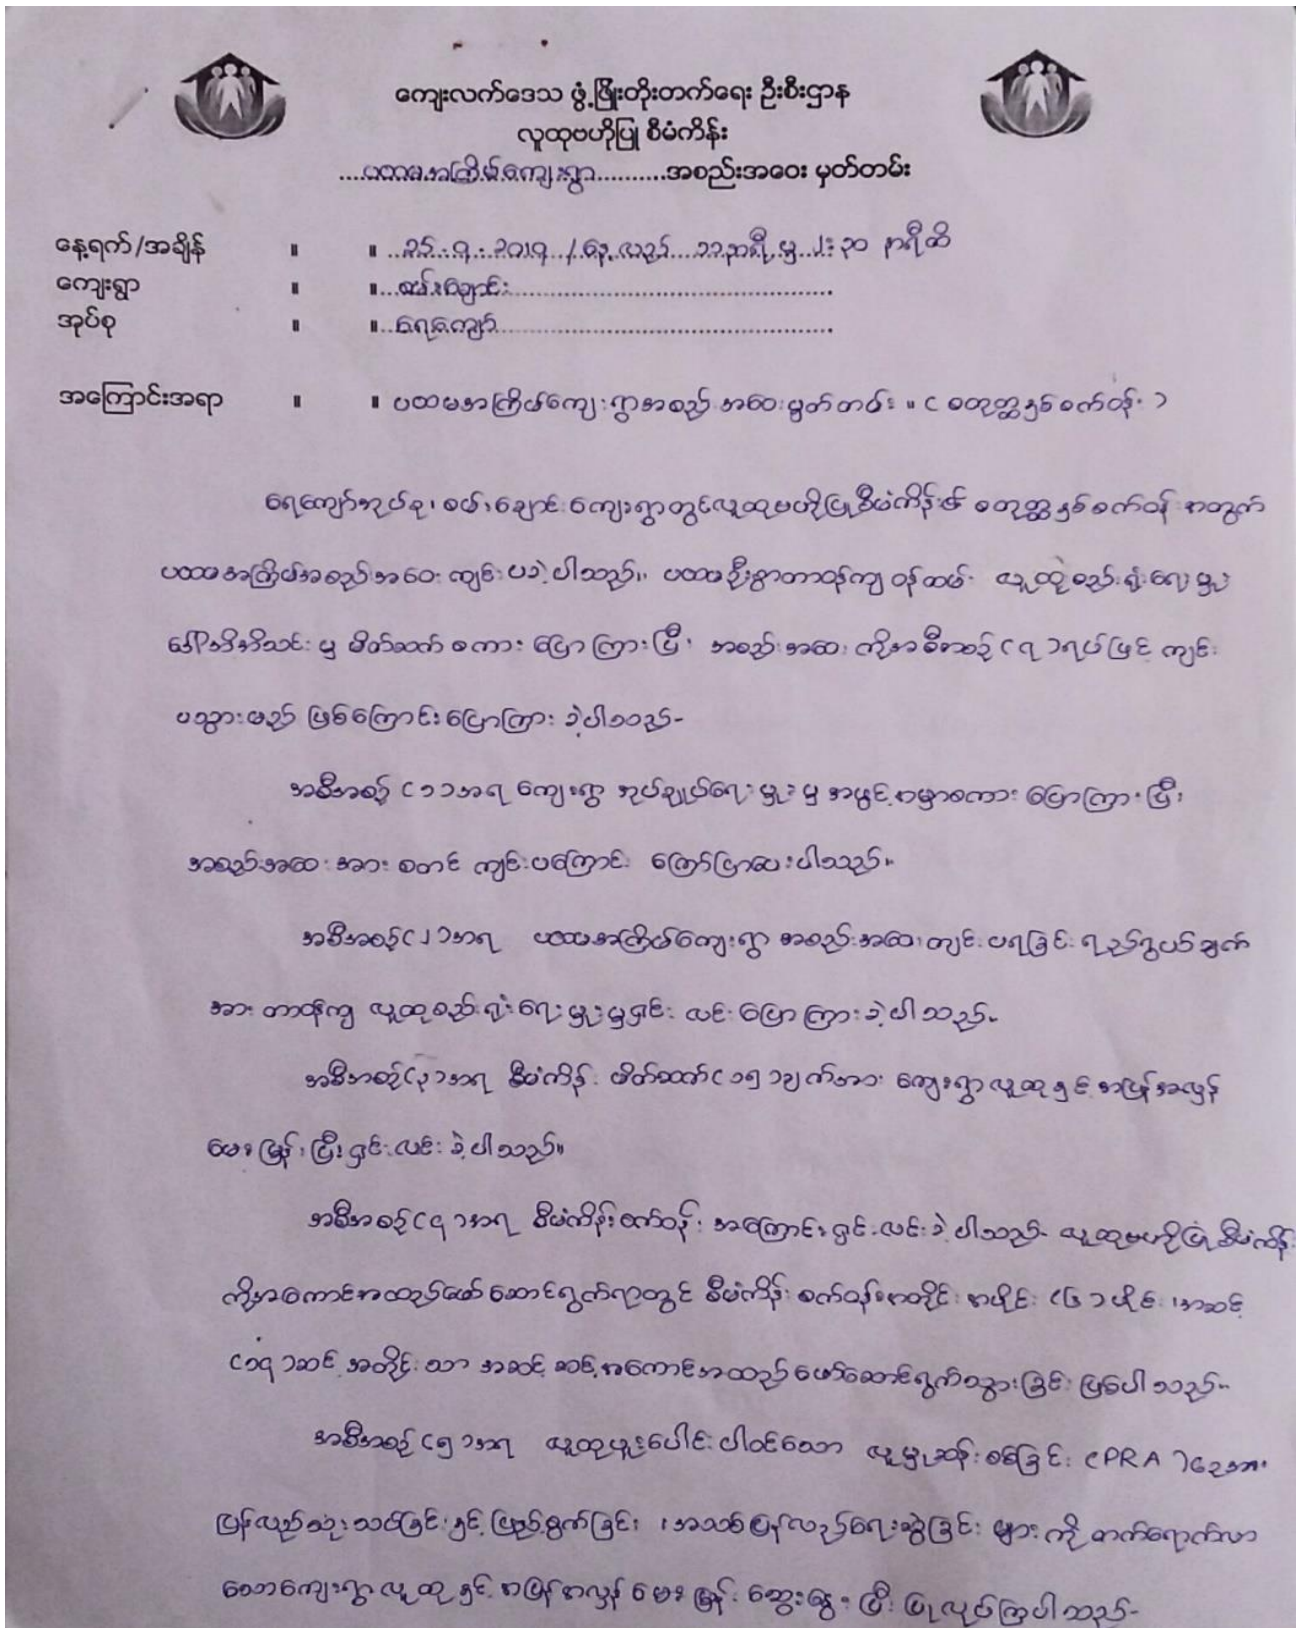 ကျေးလက်ဒေသ ဖွံ့ဖြိုးတိုးတက်ရေး ဦးစီးဌာန
လူထုဗဟိုပြု စီမံကိန်း
....ပထမအကြိမ်ကျေးရွာ..........အစည်းအဝေး မှတ်တမ်း
နေ့ရက်/အချိန် ။ ။ ..၂၅.၇.၂၀၁၇ / နေ့လည် ၁၁နာရီ မှ ၂း၃၀ နာရီထိ
ကျေးရွာ ။ ။...စမ်းချောင်း.......................................
အုပ်စု ။ ။...ရေကျော်.......................................
အကြောင်းအရာ ။ ။ ပထမအကြိမ်ကျေးရွာအစည်းအဝေးမှတ်တမ်း ။ ( စတုတ္ထနှစ်စက်ဝန်း )
ရေကျော်အုပ်စု၊ စမ်းချောင်းကျေးရွာတွင်လူထုဗဟိုပြုစီမံကိန်း၏ စတုတ္ထနှစ်စက်ဝန်းအတွက်
ပထမအကြိမ်အစည်းအဝေးကျင်းပခဲ့ပါသည်။ ပထမဦးစွာတာဝန်ကျဝန်ထမ်း လူထုစည်းရုံးရေးမှူး
မှ မိတ်ဆက်စကား ပြောကြားပြီး အစည်းအဝေးကိုအစီအစဉ်(၇)ရပ်ဖြင့် ကျင်း
ပသွားမည် ဖြစ်ကြောင်းပြောကြားခဲ့ပါသည်-
အစီအစဉ်(၁)အရ ကျေးရွာအုပ်ချုပ်ရေးမှူးမှ အဖွင့်အမှာစကား ပြောကြားပြီး
အစည်းအဝေးအား စတင်ကျင်းပကြောင်း ကြော်ငြာပေးပါသည်။
အစီအစဉ်(၂)အရ ပထမအကြိမ်ကျေးရွာ အစည်းအဝေးကျင်းပရခြင်း ရည်ရွယ်ချက်
အား တာဝန်ကျ လူထုစည်းရုံးရေးမှူးမှရှင်းလင်းပြောကြားခဲ့ပါသည်။
အစီအစဉ်(၃)အရ စီမံကိန်းမိတ်ဆက်(၁၅)ချက်အား ကျေးရွာလူထုနှင့်အပြန်အလှန်
မေးမြန်းပြီးရှင်းလင်းခဲ့ပါသည်။
အစီအစဉ်(၄)အရ စီမံကိန်းစက်ဝန်းအကြောင်းရှင်းလင်းခဲ့ပါသည်- လူထုဗဟိုပြုစီမံကိန်း
ကိုအကောင်အထည်ဖော်ဆောင်ရွက်ရာတွင် စီမံကိန်းစက်ဝန်းအတိုင်း အပိုင်း(၆)ပိုင်း၊အဆင့်
(၁၄)ဆင့်အတိုင်းသာ အဆင့်ဆင့်အကောင်အထည်ဖော်ဆောင်ရွက်သွားခြင်းဖြစ်ပါသည်။
အစီအစဉ်(၅)အရ လူထုပူးပေါင်းပါဝင်သော လူမှုဆန်းစစ်ခြင်း (PRA)
ပြန်လည်သုံးသပ်ခြင်းနှင့်ဖြည့်စွက်ခြင်း၊အသစ်ပြန်လည်ရေးဆွဲခြင်းများကိုတက်ရောက်လာ
သောကျေးရွာလူထုနှင့်အပြန်အလှန်မေးမြန်းဆွေးနွေးပြီးပြုလုပ်ကြပါသည်-